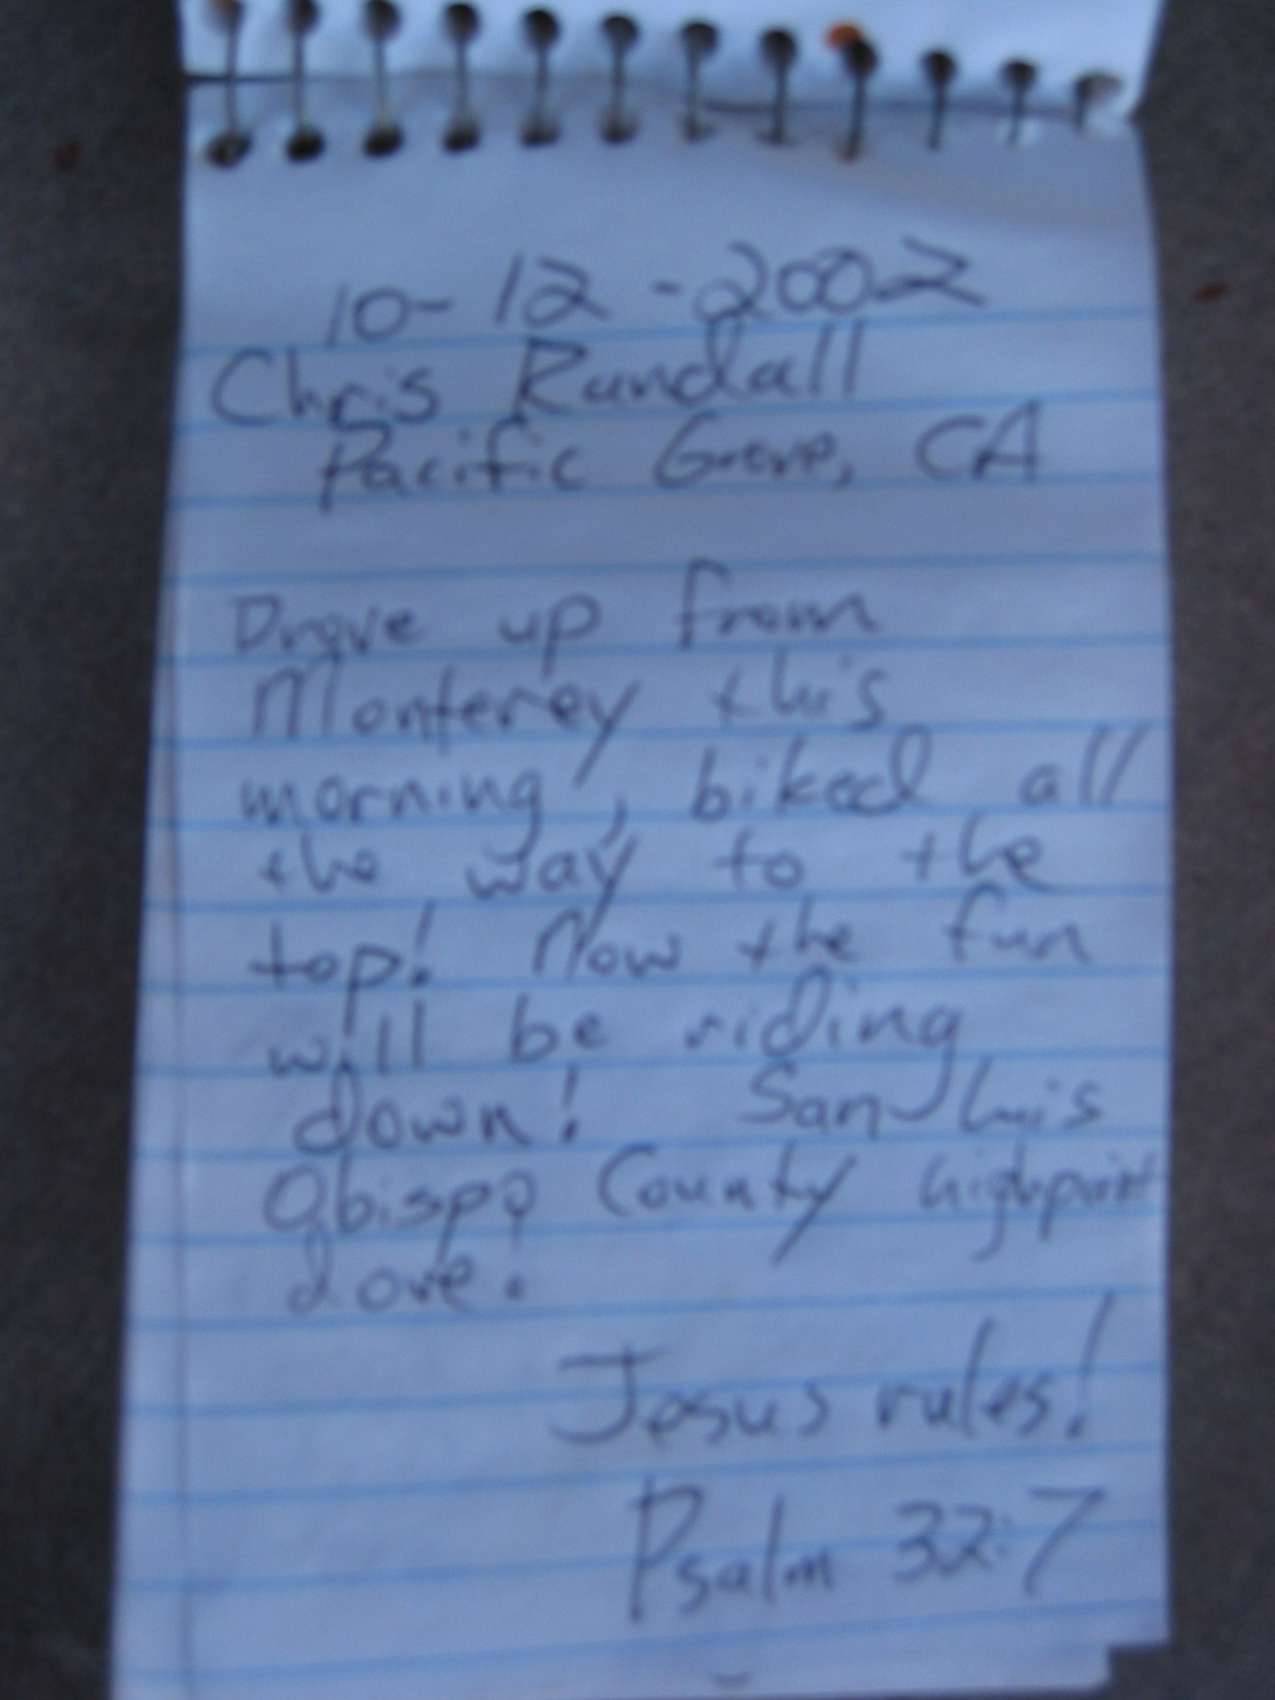 10-12-2002
Chris Randall
Pacific Grove, CA
Drove up from
Monterey this
morning, biked all
the way to the
top! Now the fun
will be riding
down! San Luis
Obispo County highpoint
done.
Jesus rules!
Psalm 32:7